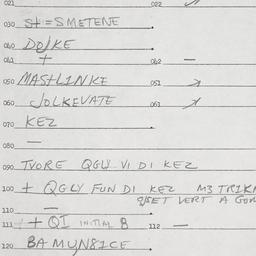 021 022
030 S+ = SMETENE
040 DOJKE
041 + 042 —
050 MASTLINKE 051
060 JOLKEVATE 061
070 KEZ
080 —
090 TVORE QGLY VI DI KEZ
100 + QGLY FUN DI KEZ M3 TRIK
VERT A GOR
110 —
111 + QI INITIAL B 112 —
120 BAMUN8ICE